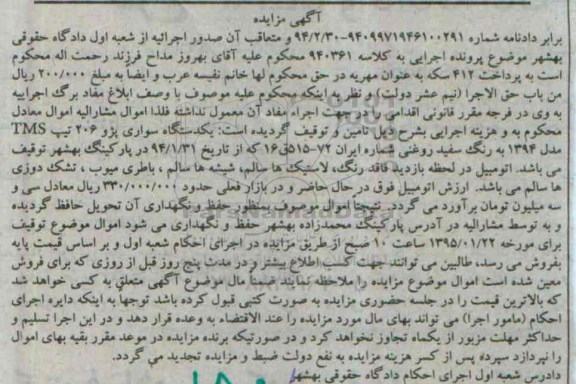 آگهی مزایده
برابر دادنامه شماره ۹۴۰۹۹۷۱۹۴۶۱۰۰۲۹۱-۹۴/۲/۳۰ و متعاقب آن صدور اجرائیه از شعبه اول دادگاه حقوقی
بهشهر موضوع پرونده اجرایی به کلاسه ۹۴۰۳۶۱ محکوم علیه آقای بهروز مداح فرزند رحمت اله محکوم
است به پرداخت ۴۱۲ سکه به عنوان مهریه در حق محکوم لها خانم نفیسه عرب و ایضا به مبلغ ۲۰۰/۰۰۰ ریال
من باب حق الاجرا (نیم عشر دولت) و نظر به اینکه محکوم علیه موصوف با وصف ابلاغ مفاد برگ اجراییه
به وی در فرجه مقرر قانونی اقدامی را در جهت اجراء مفاد آن معمول نداشته فلذا اموال مشارالیه اموال معادل
محکوم به و هزینه اجرایی بشرح ذیل تامین و توقیف گردیده است: یکدستگاه سواری پژو ۲۰۶ تیپ TMS
مدل ۱۳۹۴ به رنگ سفید روغنی شماره ایران ۷۲-۵۱۵ق۱۶ که از تاریخ ۹۴/۱/۳۱ در پارکینگ بهشهر توقیف
می باشد. اتومبیل در لحظه بازدید فاقد رنگ، لاستیک ها سالم، شیشه ها سالم ، باطری میوب ، تشک دوزی
ها سالم می باشد. ارزش اتومبیل فوق در حال حاضر و در بازار فعلی حدود ۳۳۰/۰۰۰/۰۰۰ ریال معادل سی و
سه میلیون تومان برآورد می گردد. نتیجتاً اموال موصوف بمنظور حفظ و نگهداری آن تحویل حافظ گردیده
و به توسط مشارالیه در آدرس پارکینگ محمدزاده بهشهر حفظ و نگهداری می شود اموال موضوع توقیف
برای مورخه ۱۳۹۵/۰۱/۲۲ ساعت ۱۰ صبح از طریق مزایده در اجرای احکام شعبه اول و بر اساس قیمت پایه
بفروش می رسد، طالبین می توانند جهت کسب اطلاع بیشتر و در مدت پنج روز قبل از روزی که برای فروش
معین شده است اموال موضوع مزایده را ملاحظه نمایند ضمناً مال موضوع آگهی متعلق به کسی خواهد شد
که بالاترین قیمت را در جلسه حضوری مزایده به صورت کتبی قبول کرده باشد توجها به اینکه دایره اجرای
احکام (مامور اجرا) می تواند بهای مال مورد مزایده را عند الاقتضاء به وعده قرار دهد و در این اجرا تسلیم و
حداکثر مهلت مزبور از یکماه تجاوز نخواهد کرد و در صورتیکه برنده مزایده در موعد مقرر بقیه بهای اموال
را نپردازد سپرده پس از کسر هزینه مزایده به نفع دولت ضبط و مزایده تجدید می گردد.
دادرس شعبه اول اجرای احکام دادگاه حقوقی بهشهر